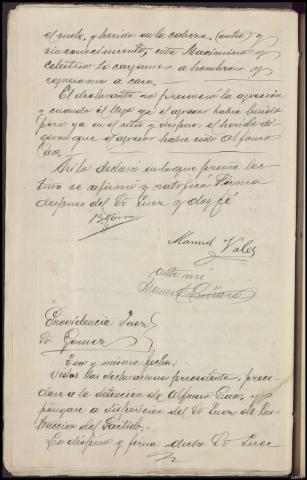 el suelo, y herido en la cabeza, (cutre) y
sin conocimiento, entre Maximino y
Celestino lo cargamos a hombros y
regresamos a casa.
El declarante no presenció la agresión
y cuando él llegó ya el agresor había huido
pero ya en el sitio y después el herido
que el agresor había sido Alfonso
Cao.
Así lo declaró en la que previa lec-
tura se afirmó y ratificó firma
después del Sr Juez y doy fé
Manuel
ante mi
Manuel
Providencia Juez
Sr Gomez
Eno y misma fecha.
Vistas las declaraciones precedentes, proce-
dase a la detención de Alfonso Cao y
póngase a disposición del Sr Juez de Ins-
trucción del Partido.
Lo dispuso y firma dicho Sr Juez